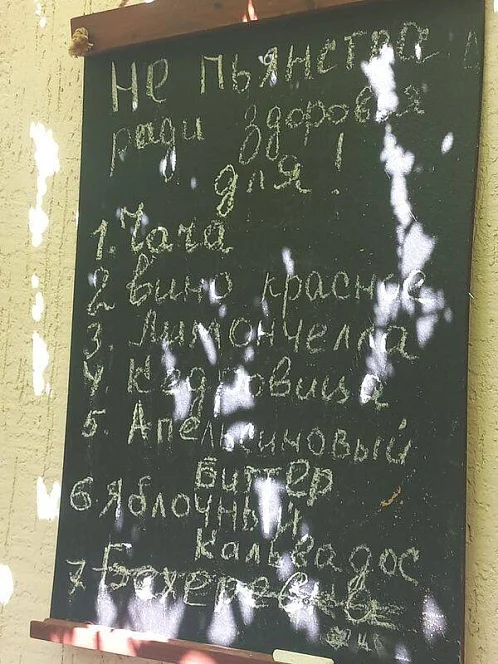 Не пьянства
ради здоровья
для!
1. Чача
2 вино красное
3 Лимончелла
4 Кедровица
5. Апельсиновый
Биттер
6. Яблочный
Кальвадос
7